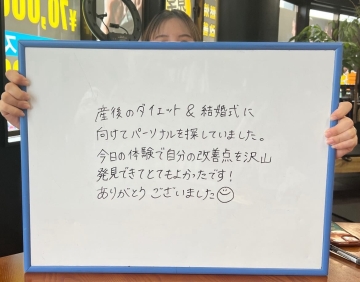 ¥70,000
産後のダイエット & 結婚式に
向けてパーソナルを探していました。
今日の体験で自分の改善点を沢山
発見できてとてもよかったです!
ありがとうございました